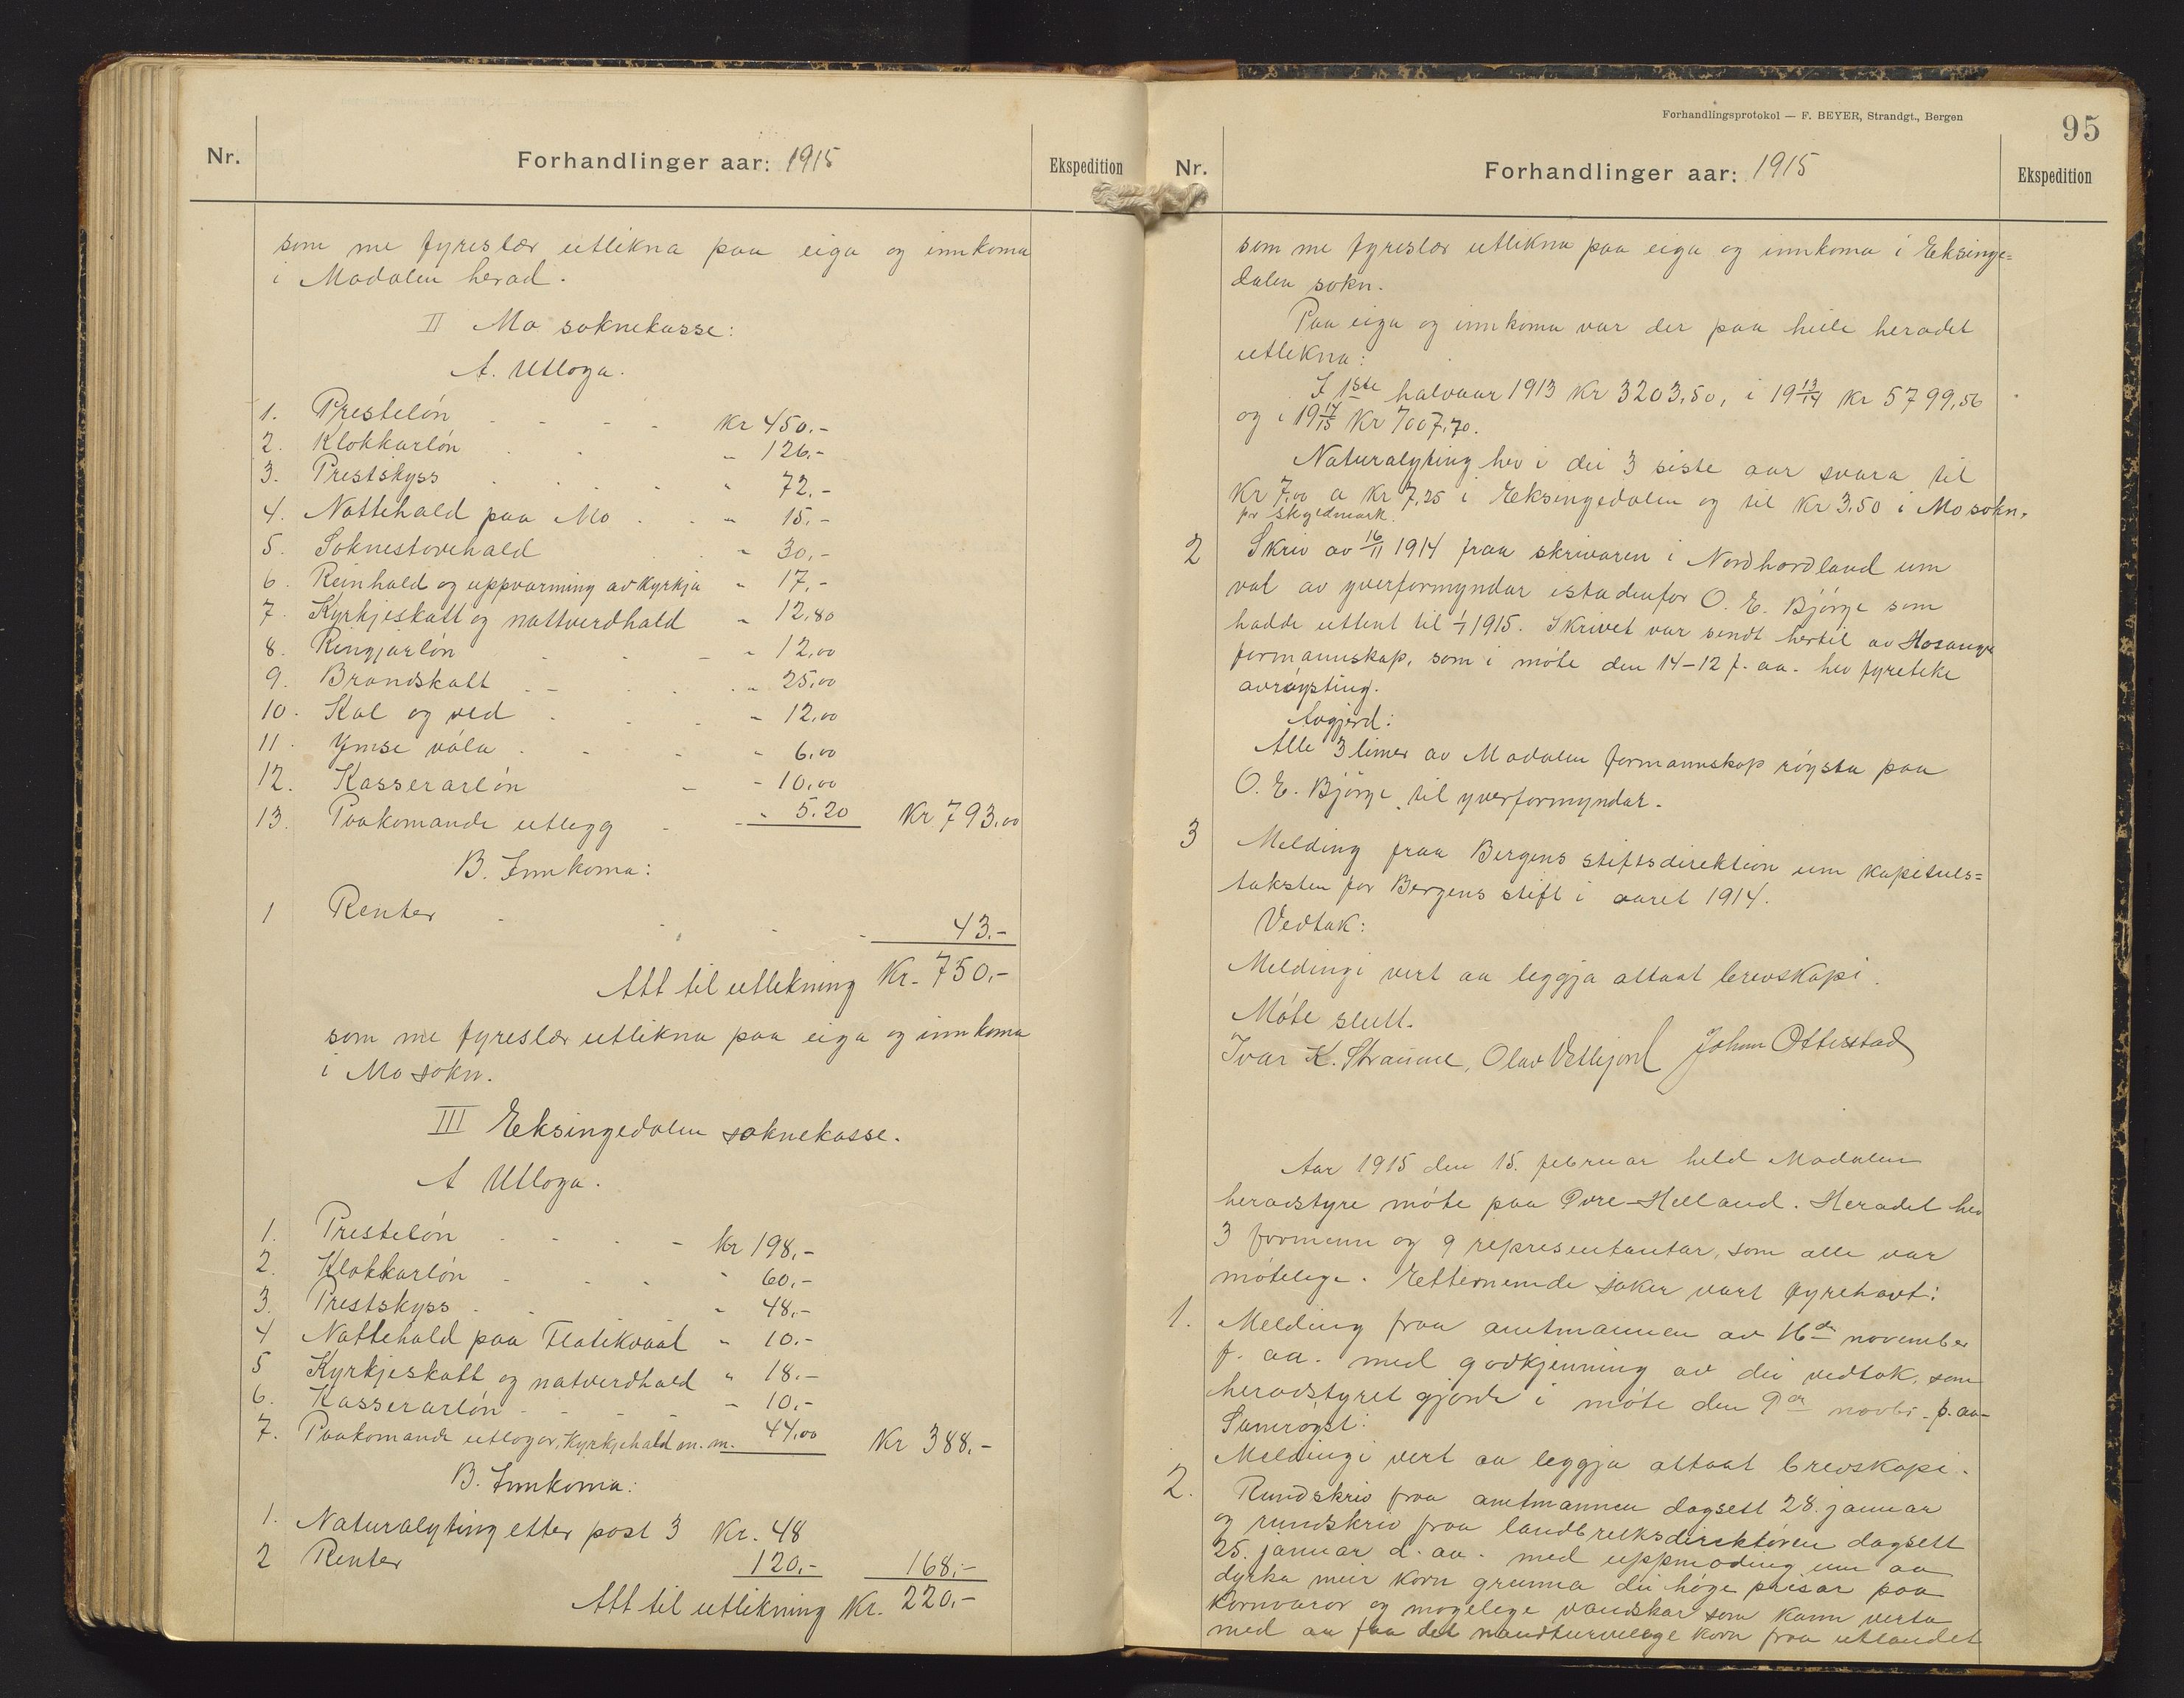 Nr.
Forhandlinger aar: 1915
Ekspedition
som me fyreslær utlikna paa eiga og innkoma
i Modalen herad.
II Mo soknekasse:
A. Utloga.
1. Presteløn - - - - kr 450.-
2. Klokkarløn . . " 126.-
3. Prestskyss . . . . " 72.-
4. Nattehald paa Mo . . " 15.-
5. Soknestovehald . " 30,-
6. Reinhald og uppvarming av kyrkja " 17,-
7. Kyrkjeskatt og nattverdhald " 12,80
8. Ringjarløn - - - " 12,00
9. Brandskatt . - . . " 25,00
10. Kol og ved . . - " 12,00
11. Ymse våla . - - " 6,00
12. Kasserarløn - - 10,00
13. Paakomande utlegg - - " 5.20 Kr 793,00
B. Innkoma:
1 Renter - - - - 43.-
Att til utlikning Kr. 750,-
som me fyreslær utlikna paa eiga og innkoma
i Mo sokn.
III Eksingedalen soknekasse.
A Utloga.
1. Presteløn . - . - kr 198,-
2. Klokkarløn - . . " 60,-
3. Prestskyss - - " 48,-
4 Nattehald paa Flatekvaal " 10.-
5 Kyrkjeskatt og natverdhald " 18.-
6. Kasserarløn - - - - - 10,-
7. Paakomande utlogor, kyrkjehald m.m. 44,00 Kr 388.-
B. Innkoma:
1. Naturalyting etter post 3 Kr. 48
2 Renter 120,- 168,-
Att til utlikning Kr. 220,-
Forhandlingsprotokol — F. BEYER, Strandgt., Bergen
95
Nr.
Forhandlinger aar: 1915
Ekspedition
som me fyreslær utlikna paa eiga og innkoma i Eksinge=
dalen sokn.
Paa eiga og innkoma var der paa heile heradet
utlikna:
I 1ste halvaar 1913 kr 3203,50, i 19 13/14 kr 5799,56
og i 19 14/15 kr 7007,70.
Naturalyting hev i dei 3 siste aar svara til
kr 7,00 a kr 7,25 i Eksingedalen og til kr 3,50 i Mo sokn.
pr skyldmark.
2 Skriv av 16/11 1914 fraa skrivaren i Nordhordland um
val av yverformyndar istadenfor O. E. Bjørge som
hadde uttent til 1/1 1915. Skrivet var sendt hertil av Hosanger
formannskap, som i møte den 14-12 f. aa. hev fyreteke
avrøysting.
Avgjerd:
Alle 3 limer av Modalen formannskap røysta paa
O. E. Bjørge til yverformyndar.
3 Melding fraa Bergens stiftsdirektion um kapitels=
taksten for Bergens stift i aaret 1914.
Vedtak:
Meldingi vert aa leggja attaat brevskapi.
Møte slutt.
Ivar K. Straume, Olav Vetlejord Johan Otterstad
Aar 1915 den 15. februar held Modalen
heradstyre møte paa Øvre-Helland. Heradet hev
3 formenn og 9 representantar, som alle var
møtelege. Etternemnde saker vart fyrehavt:
1. Melding fraa amtmannen av 16de november
f. aa. med godkjenning av dei vedtak, som
heradstyret gjorde i møte den 9de novbr. f. aa-
Samrøyst:
Meldingi vert aa leggja attaat brevskapi.
2. Rundskriv fraa amtmannen dagsett 28. januar
og rundskriv fraa landbruksdirektøren dagsett
25. januar d. aa. med uppmoding um aa
dyrka meir korn grunna dei høge prisar paa
kornvaror og mogelege vandskar som kann verta
med aa faa det naudturvelege korn fraa utlandet